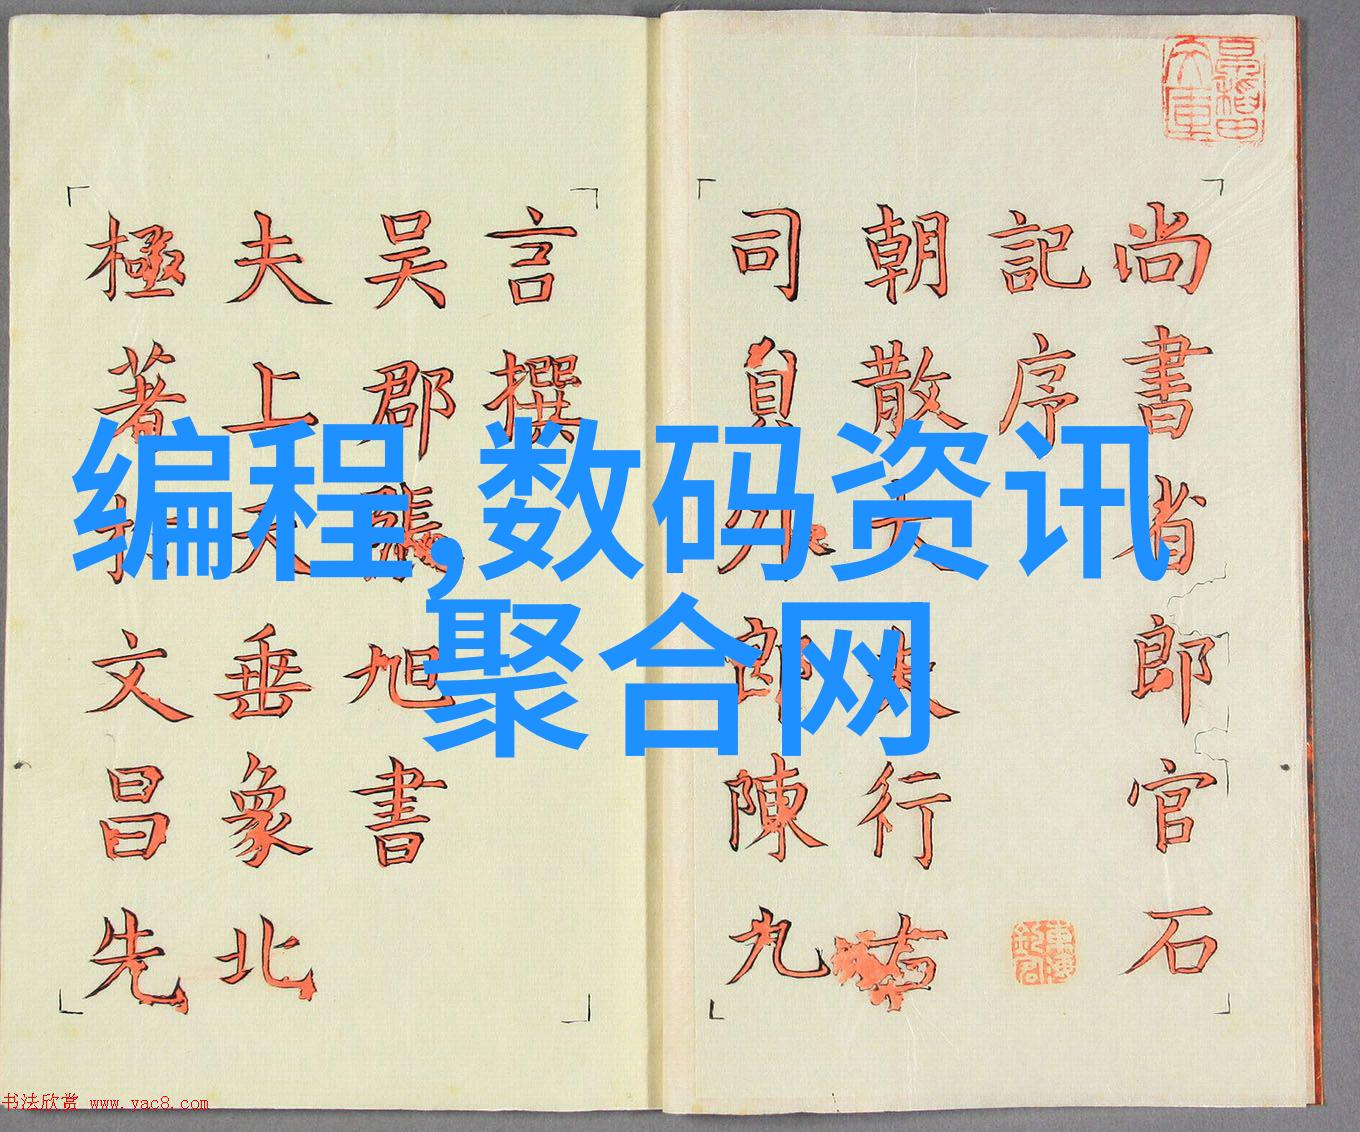 尚書省郎官石
記序
朝散大夫行右
司員外郎陳九
言撰
吳郡張旭書
夫上天垂象北
極著於文昌先
编程,数码资讯
聚合网
书法欣赏 www.yac8.com